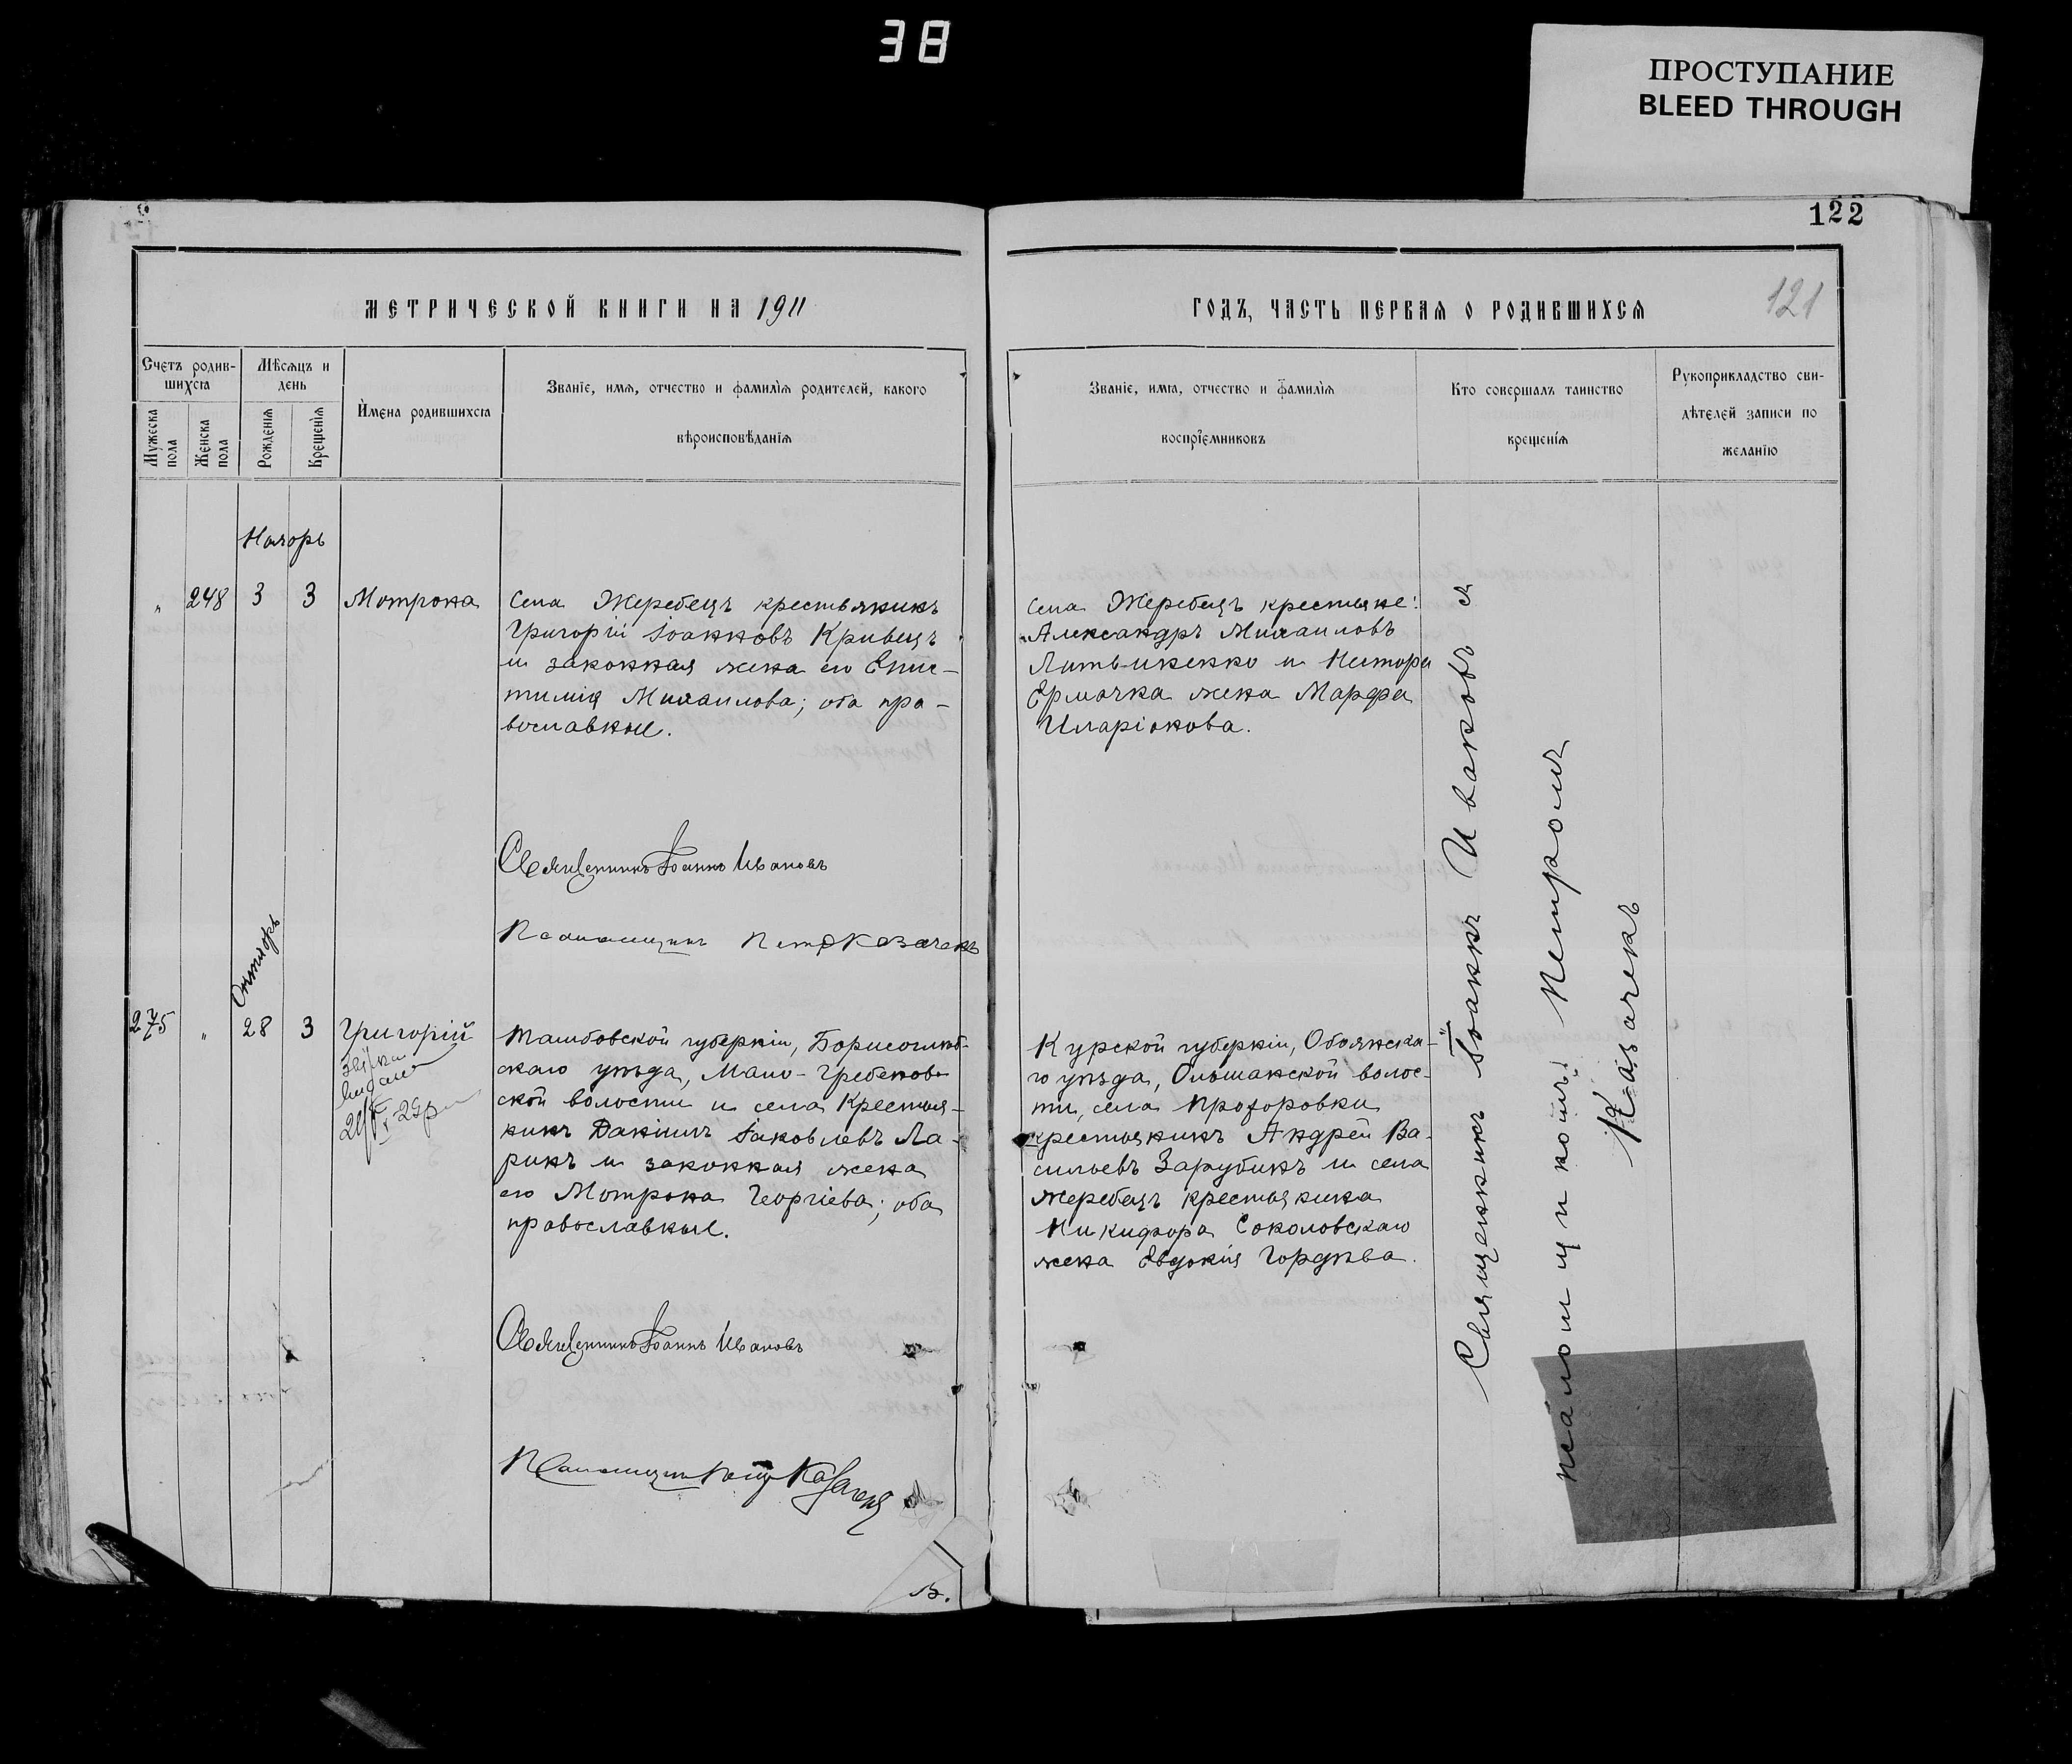 38
ПРОСТУПАНИЕ
BLEED THROUGH
122
МЕТРИЧЕСКОЙ КНИГИ НА 1911
ГОДЪ, ЧАСТЬ ПЕРВАЯ О РОДИВШИХСЯ
121
Счетъ родив-
шихся
Мѣсяцъ и
день
Имена родившихся
Званіе, имя, отчество и фамилія родителей, какого
вѣроисповѣданія
Мужеска
пола
Женска
пола
Рожденія
Крещенія
Званіе, имя, отчество и фамилія
воспріемниковъ
Кто совершалъ таинство
крещенія
Рукоприкладство сви-
дѣтелей записи по
желанію
Ноябрь
" 248 3 3 Мотрона
Села Жеребецъ крестьянинъ
Григорій Іоанновъ Кривецъ
и законная жена его Епис-
тимія Михаилова; оба пра-
вославные.
Священникъ Іоаннъ Ивановъ
Псаломщикъ Петръ Козачекъ
Села Жеребецъ крестьяне:
Александръ Михаиловъ
Литвиненко и Нестора
Ермачка жена Марфа
Иларіонова.
Октябрь
275 " 28 3 Григорій
Тамбовской губерніи, Борисоглѣб-
скаго уѣзда, Мало-Грибанов-
ской волости и села крестья-
нинъ Даніилъ Іаковлевъ Ла-
ринъ и законная жена
его Мотрона Георгіева; оба
православные.
Священникъ Іоаннъ Ивановъ
Псаломщикъ Петръ Козачекъ
Курской губерніи, Обоянска-
го уѣзда, Ольшанской волос-
ти, села Прохоровки
крестьянинъ Андрей Ва-
сильевъ Зарубинъ и села
Жеребецъ крестьянина
Никифора Соколовскаго
жена Евдокія Гордѣева.
Священникъ Іоаннъ Ивановъ съ
псаломщикомъ Петромъ
Козачекъ
В.